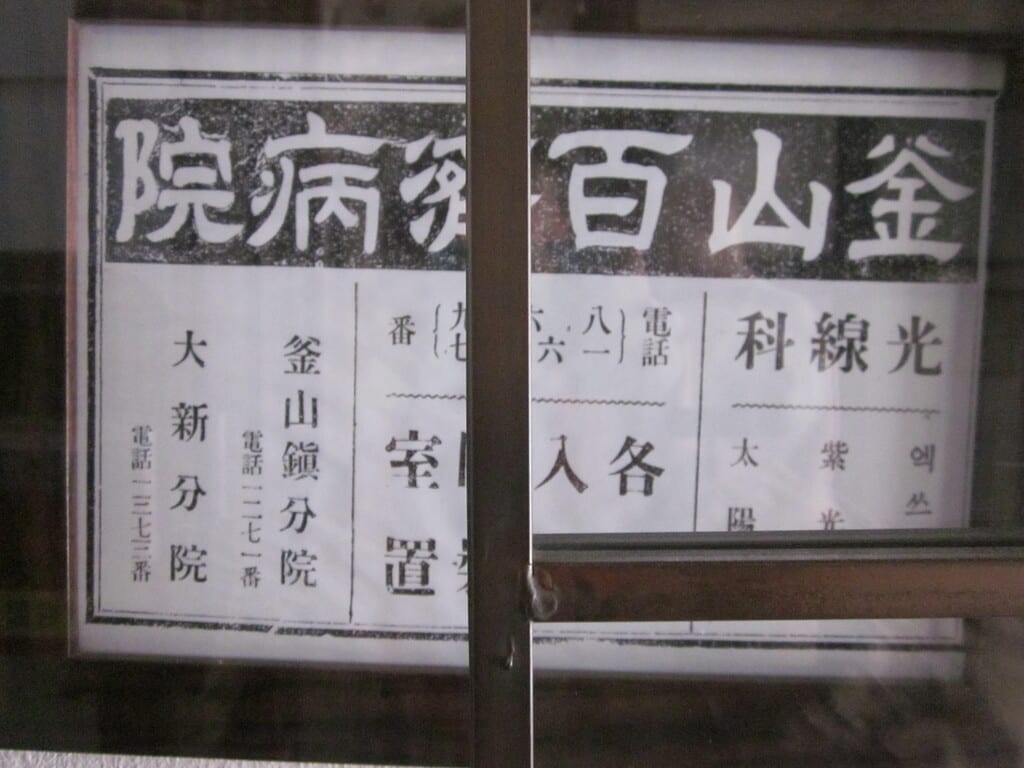 釜山百濟病院
光線科
엑쓰
紫光
太陽
電話 八一 六六 九七 番
各入 室
置
釜山鎭分院
電話一二七一番
大新分院
電話一三七三番